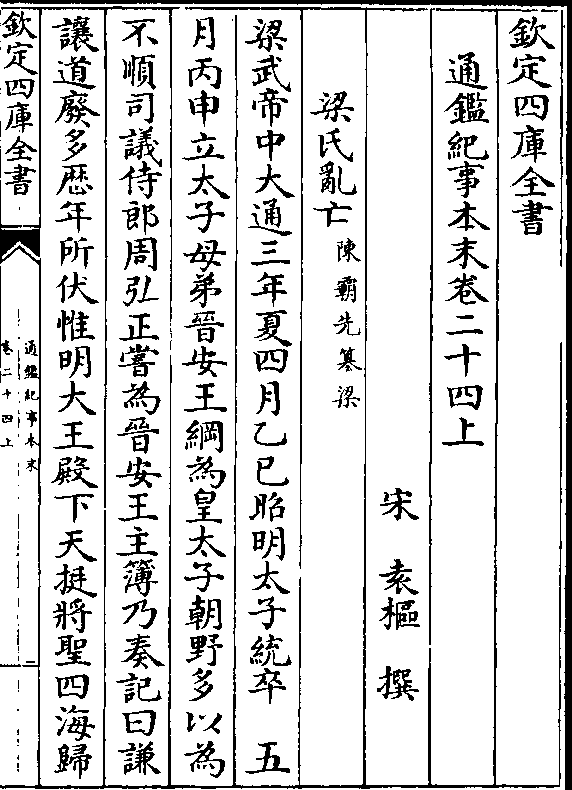 欽定四庫全書
通鑑紀事本末卷二十四上
宋 袁樞 撰
梁氏亂亡 陳霸先簒梁
梁武帝中大通三年夏四月乙巳昭明太子統卒 五
月丙申立太子母弟晉安王綱為皇太子朝野多以為
不順司議侍郎周弘正嘗為晉安王主簿乃奏記曰謙
讓道廢多歴年所伏惟明大王殿下天挺將聖四海歸
欽定四庫全書
通鑑紀事本末
卷二十四上
一